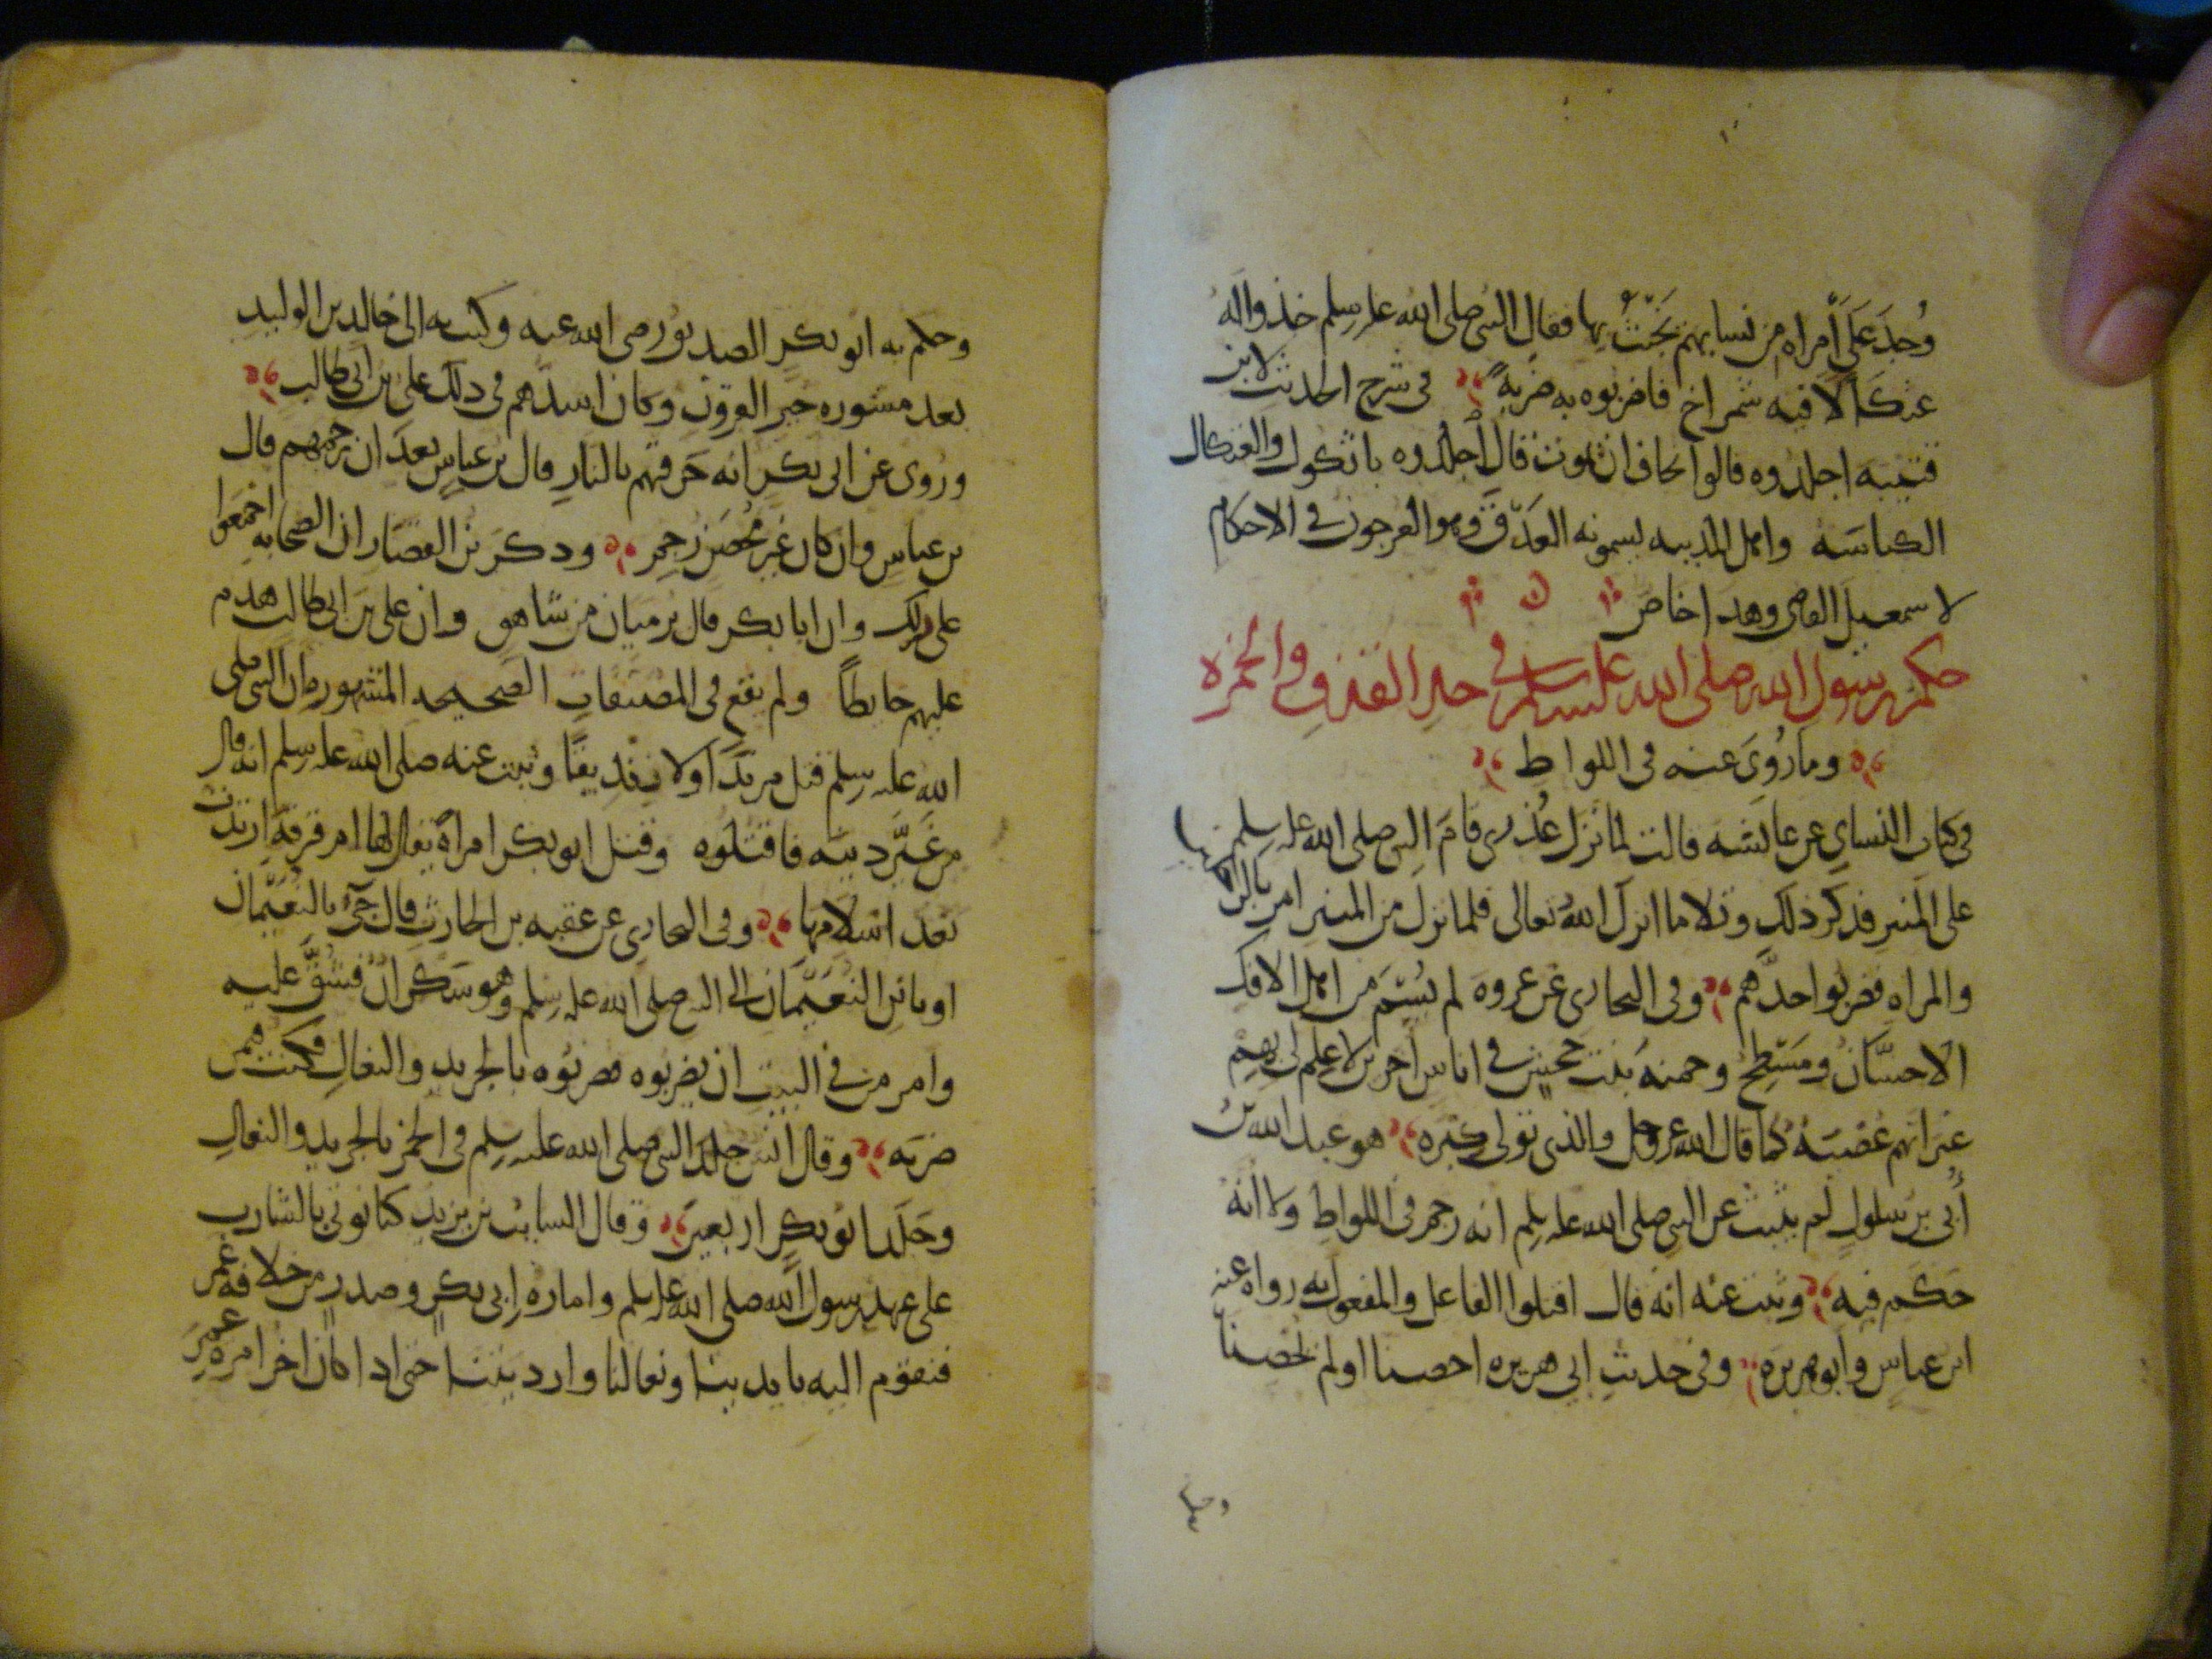 وُجِدَ عَلَى امراه من نسايهم يَخبُثُ بها فقال النبى صلى الله عليه وسلم خذوا له
عثكَالًا فيه شمراخ فاضربوه به ضربةً في شرح الحديث لابن
قتيبه اجلدوه فالوا نخاف ان يموت قال اجلدوه باثكول والعثكال
الكباسَه واهل المدينه يسمونه العَذق وهو العرجون في الاحكام
لاسمعيل القاضى وهدا خاص
حكم رسول الله صلى الله عليه وسلم في حد القذف وفي الخمره
وما رُوىَ عنه فى اللواط
فى كتاب النساي عن عايشه قالت لما نزل عُذرى قامَ النبى صلى الله عليه وسلم
على المنبر فذكر ذلك وتلا ما انزل الله تعالى فلما نزل من المنبر امر بالرجلين
والمراه فضربوا حدَّهم وفى البخارى عن عروه لم يُسَمَّ من اهل الافك
الا حسَّان ومسَطح وحمنه بنت جحش في اناس اخرين لا علم لى بهم
غير انهم عُصبَةٌ كما قال الله عز وجل والذى تولى كبره هو عبد الله بن
أُبى بن سلول لم يثبث عن النبى صلى الله عليه وسلم انه رجم فى اللواط ولا انه
حكم فيه وثبت عنه انه قال اقتلوا الفاعل والمفعول به رواه عنه
ابن عباس وابو هريره وفى حديث ابى هريره احصنا اولم يحصنا
وحكم
وحكم به ابو بكر الصديق رضى الله عنه وكتب به الى خالد بن الوليد
بعد مشوره خير القرون وكان اشدهم فى ذلك على بن ابى طالب
ورُوى عن ابى بكر انه حَرقهم بالنار وقال بن عباس بعدَ ان يرجمهم قال
بن عباس وان كان غير مُحصَن رُجم ودكَر بن القصَّار ان الصحابه اجمعوا
على ذلك وان ابا بكر قال يرميان من شاهق وان على بن ابى طالب هدم
عليهم حايطًا ولم يقع فى المصنفات الصحيحه المشهوره ان النبى صلى
الله عليه وسلم قتل مرتدًا ولا زنديقًا وثبت عنه صلى الله عليه وسلم انه قال
من غيَّر دينه فاقتلوه وقتل ابو بكر امراةً يقال لها ام قرفة ارتدت
بعد اسلامها وفى البخارى عن عقبه بن الحارث قال جىَ بالنُعيَمان
او بابن النعيَمان الى النبى صلى الله عليه وسلم وهو سَكران فشُقَّ عليه
وامر من في البيت ان يضربوه فضربوه بالجريد والنعال فكنت فيمن
ضربَه وقال انس جلدَ النبى صلى الله عليه وسلم فى الخمر بالجريد والنعال
وجَلد ابو بكر اربعين وقال السايب بن يزيد كنا نوتى بالشارب
على عهد رسول الله صلى الله عليه وسلم واماره ابى بكر وصدر من خلافه عُمر
فنقوم اليه بايدينا ونعالنا وارديتنا حتى ادا كان اخر امره عمر